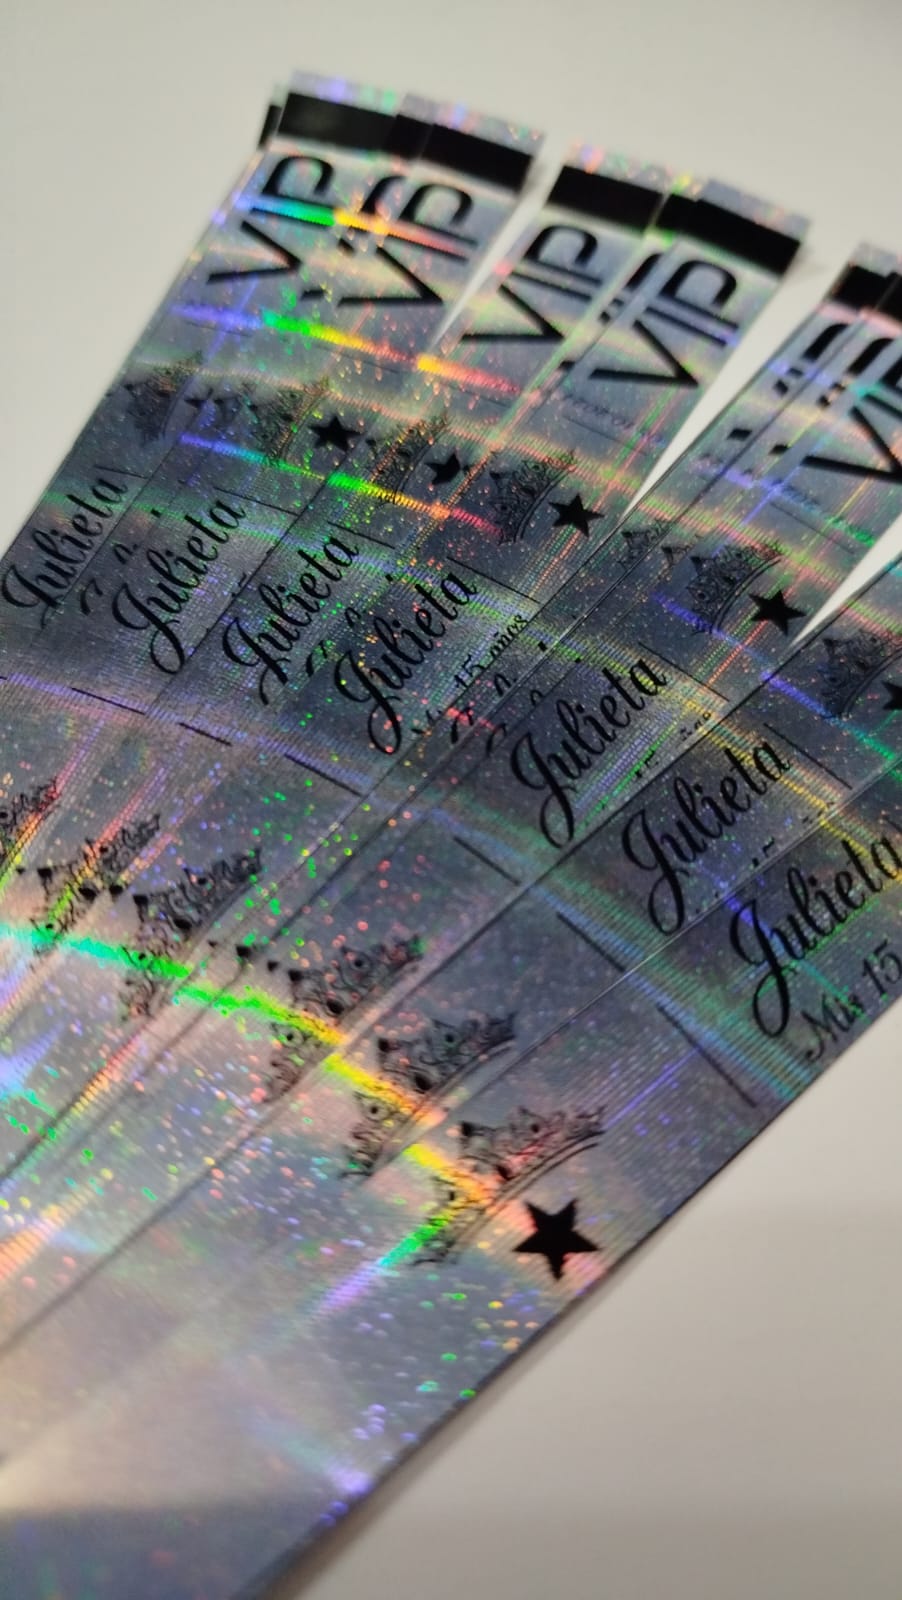 VIP
VIP
VIP
VIP
VIP
Julieta
Julieta
Julieta
Julieta
Mis 15 años
Julieta
Julieta
Julieta
Mis 15